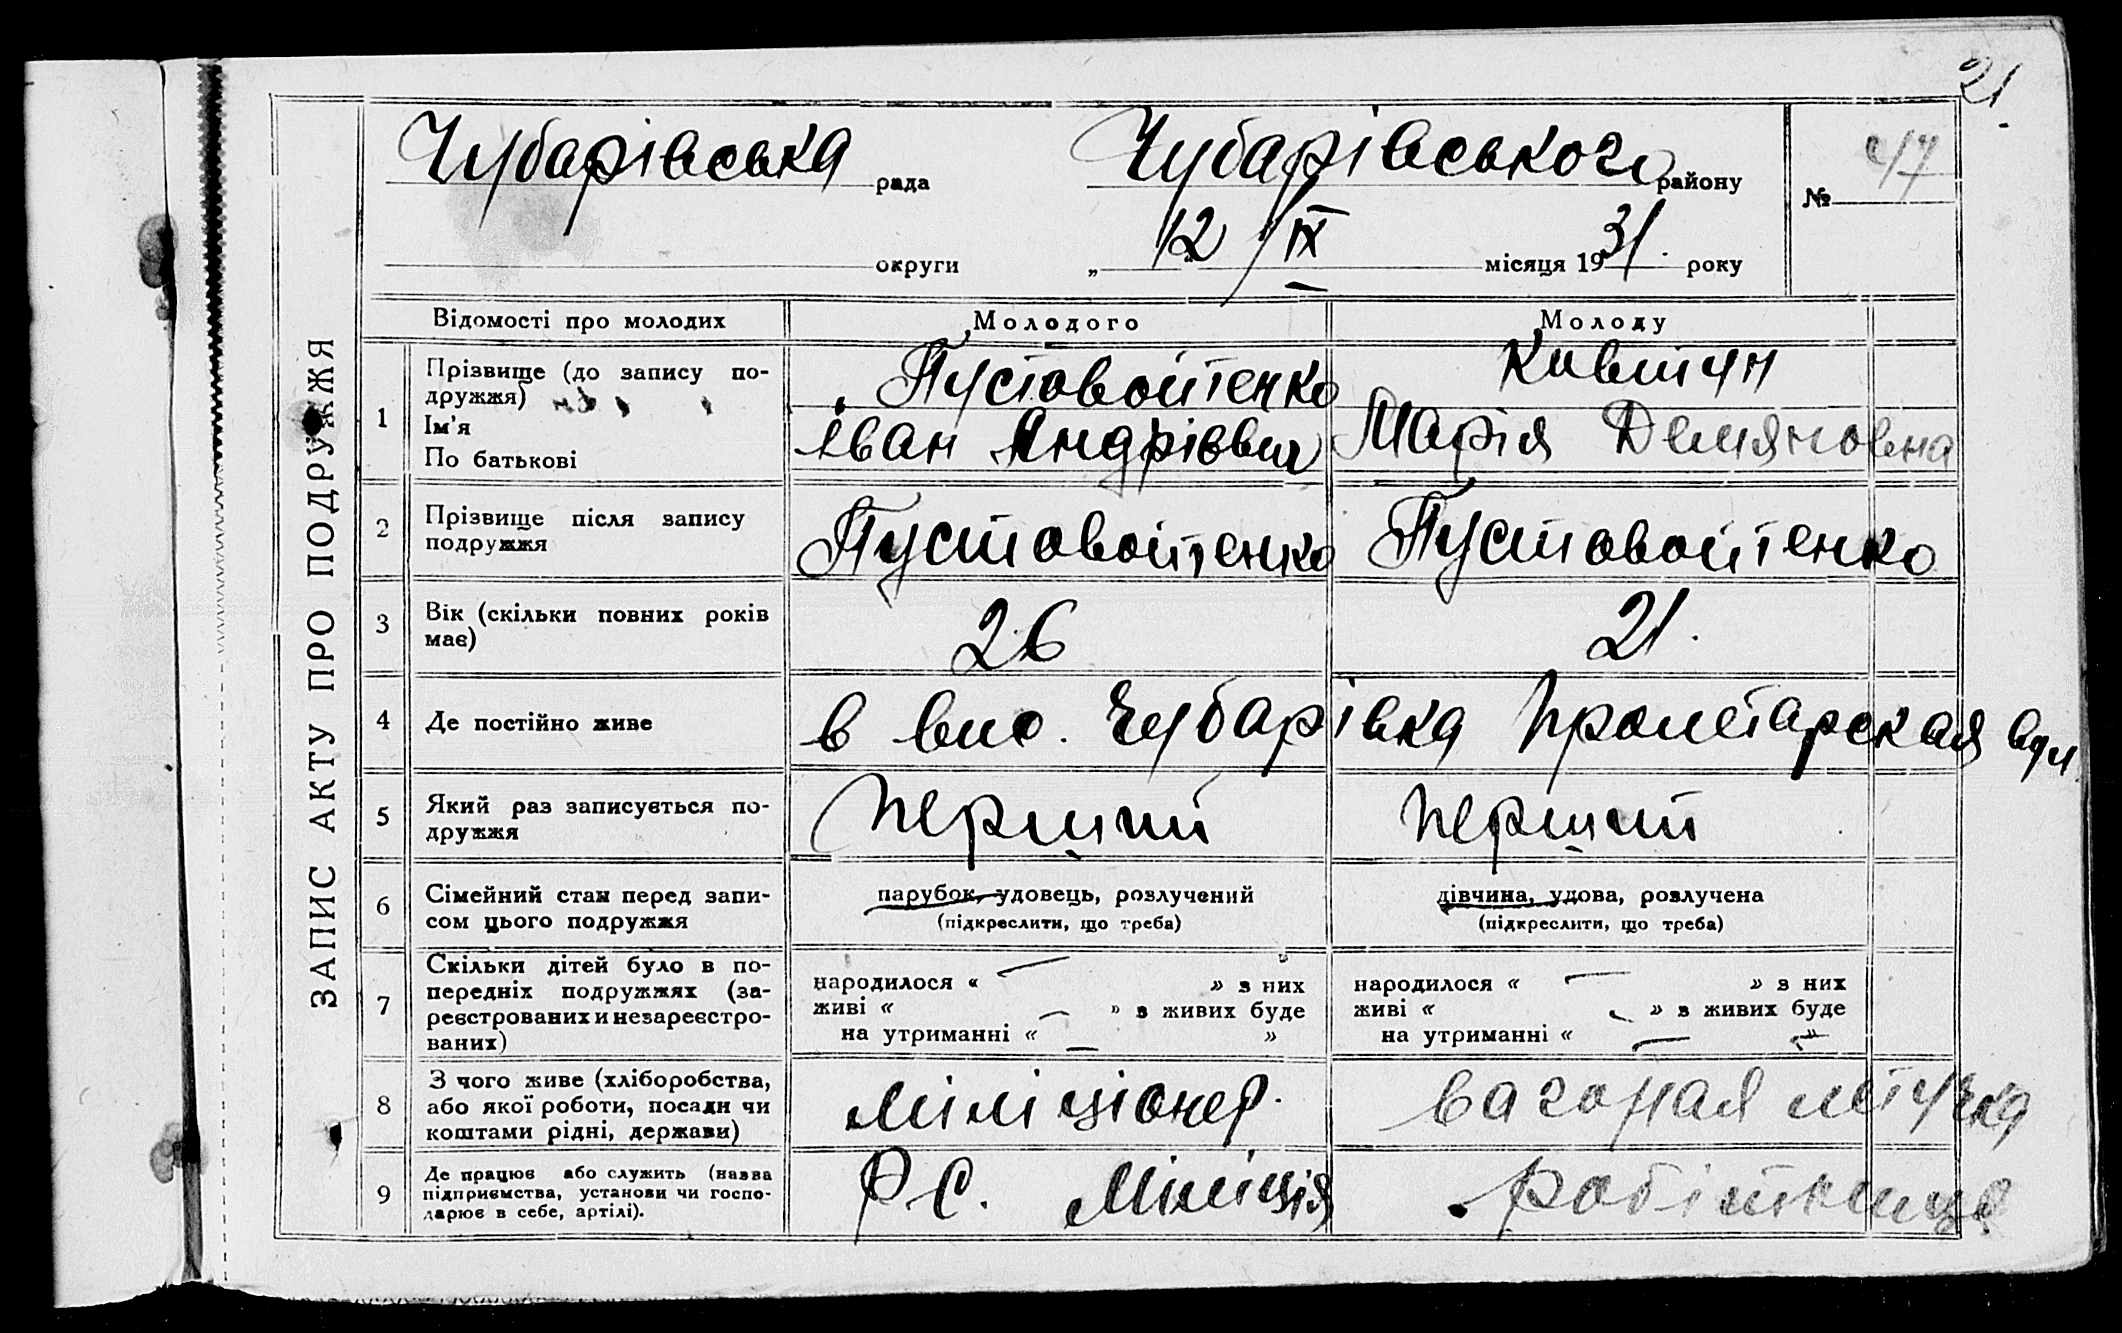 21
ЗАПИС АКТУ ПРО ПОДРУЖЖЯ
Чубарівська рада Чубарівського району № 47
округи „ 12 / IX місяця 1931. року
Відомості про молодих Молодого Молоду
1 Прізвище (до запису по-
дружжя) Пустовойтенко Кившун
Ім'я Іван Андрієвич Марія Демяновна
По батькові
2 Прізвище після запису
подружжя Пустовойтенко Пустовойтенко
3 Вік (скільки повних років
має) 26 21.
4 Де постійно живе в вис. Чубарівка Пролетарская вул
5 Який раз записується по-
дружжя перший перший
6 Сімейний стан перед запи-
сом цього подружжя
парубок, удовець, розлучений дівчина, удова, розлучена
(підкреслити, що треба) (підкреслити, що треба)
7 Скільки дітей було в по-
передніх подружжях (за-
реєстрованих и незареєстро-
ваних)
народилося « — » з них народилося « — » з них
живі « — » з живих буде живі « — » з живих буде
на утриманні « — » на утриманні « — »
8 З чого живе (хліборобства,
або якої роботи, посади чи
коштами рідні, держави) міліціонер.
9 Де працює або служить (назва
підприємства, установи чи госпо-
дарює в себе, артілі). Р.С. Міліція робітниця